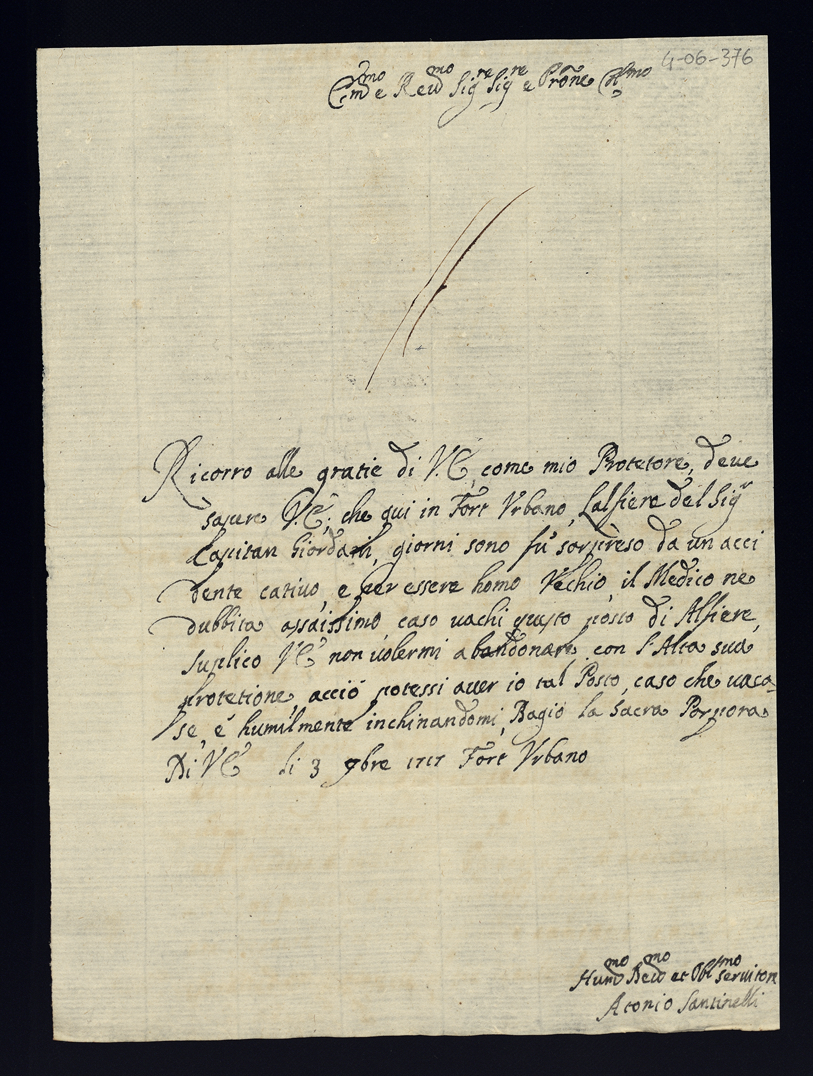 4-06-376
Em.mo e Reu.mo Sig.re Sig.re e Prone Col.mo
Ricorro alle gratie di V.E. come mio Protetore, deue
sapere V.E. che qui in Fort Vrbano, Lalfiere del Sig.r
Capitan Giordani, giorni sono fu' sorpreso da un acci
dente catiuo, e per essere homo Vechio, il Medico ne
dubbita assaissimo caso uachi questo posto di Alfiere,
suplico V.E. non uolermi abandonare con l'Alta sua
protetione acció potessi auer io tal Posto, caso che uaca-
se é humilmente inchinandomi, Bagio la Sacra Porpora
Di V.E. li 3 9bre 1717 Fort Vrbano
Hum.mo Deu.mo et Obl.mo seruitore
Atonio Santinelli